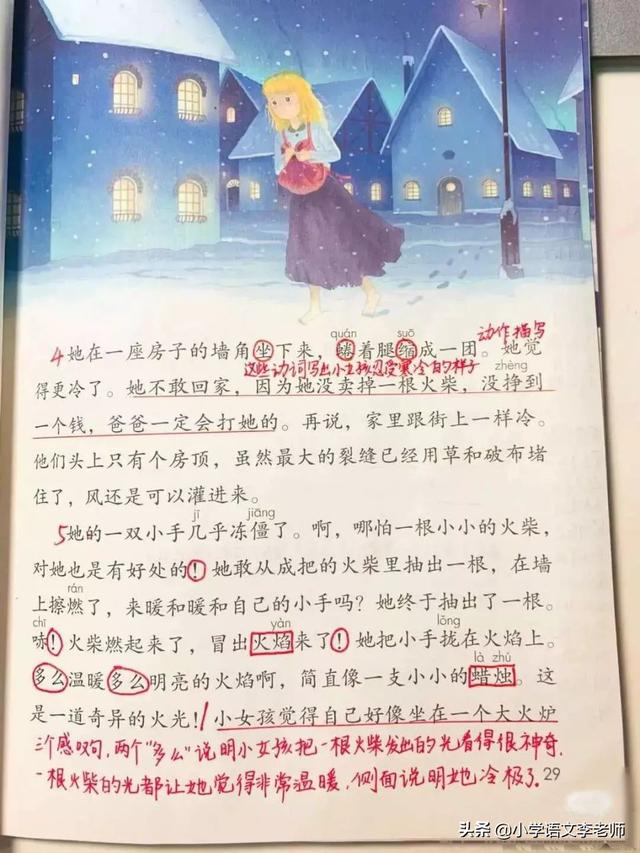 quán suō 动作描写
4她在一座房子的墙角坐下来，蜷着腿缩成一团。她觉
这些动词写出小女孩忍受寒冷的样子 zhèng
得更冷了。她不敢回家，因为她没卖掉一根火柴，没挣到
一个钱，爸爸一定会打她的。再说，家里跟街上一样冷。
他们头上只有个房顶，虽然最大的裂缝已经用草和破布堵
住了，风还是可以灌进来。
jī jiāng
5她的一双小手几乎冻僵了。啊，哪怕一根小小的火柴，
对她也是有好处的！她敢从成把的火柴里抽出一根，在墙
rán
上擦燃了，来暖和暖和自己的小手吗？她终于抽出了一根。
chī yàn lǒng
哧！火柴燃起来了，冒出火焰来了！她把小手拢在火焰上。
là zhú
多么温暖多么明亮的火焰啊，简直像一支小小的蜡烛。这
是一道奇异的火光！小女孩觉得自己好像坐在一个大火炉
三个感叹句，两个“多么”说明小女孩把一根火柴发出的光看得很神奇.
一根火柴的光都让她觉得非常温暖，侧面说明她冷极了.
29
头条 @小学语文李老师